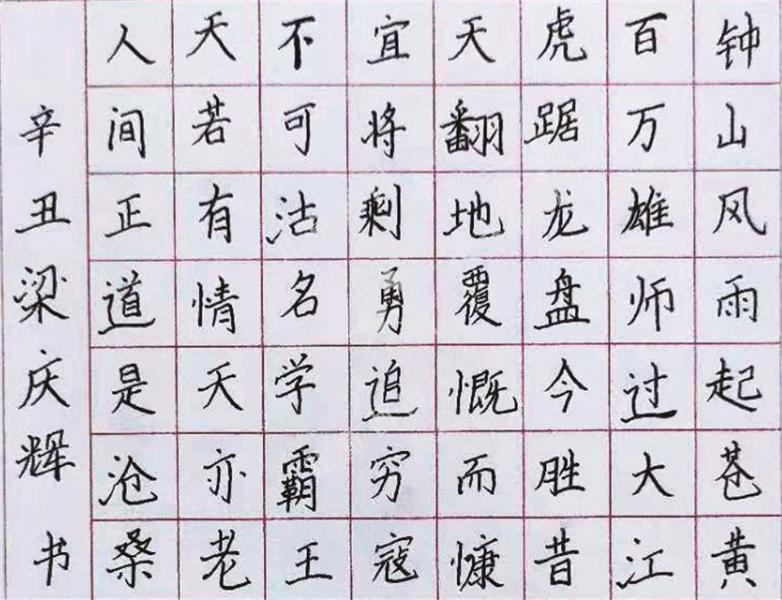 钟山风雨起苍黄
百万雄师过大江
虎踞龙盘今胜昔
天翻地覆慨而慷
宜将剩勇追穷寇
不可沽名学霸王
天若有情天亦老
人间正道是沧桑
辛丑梁庆辉书